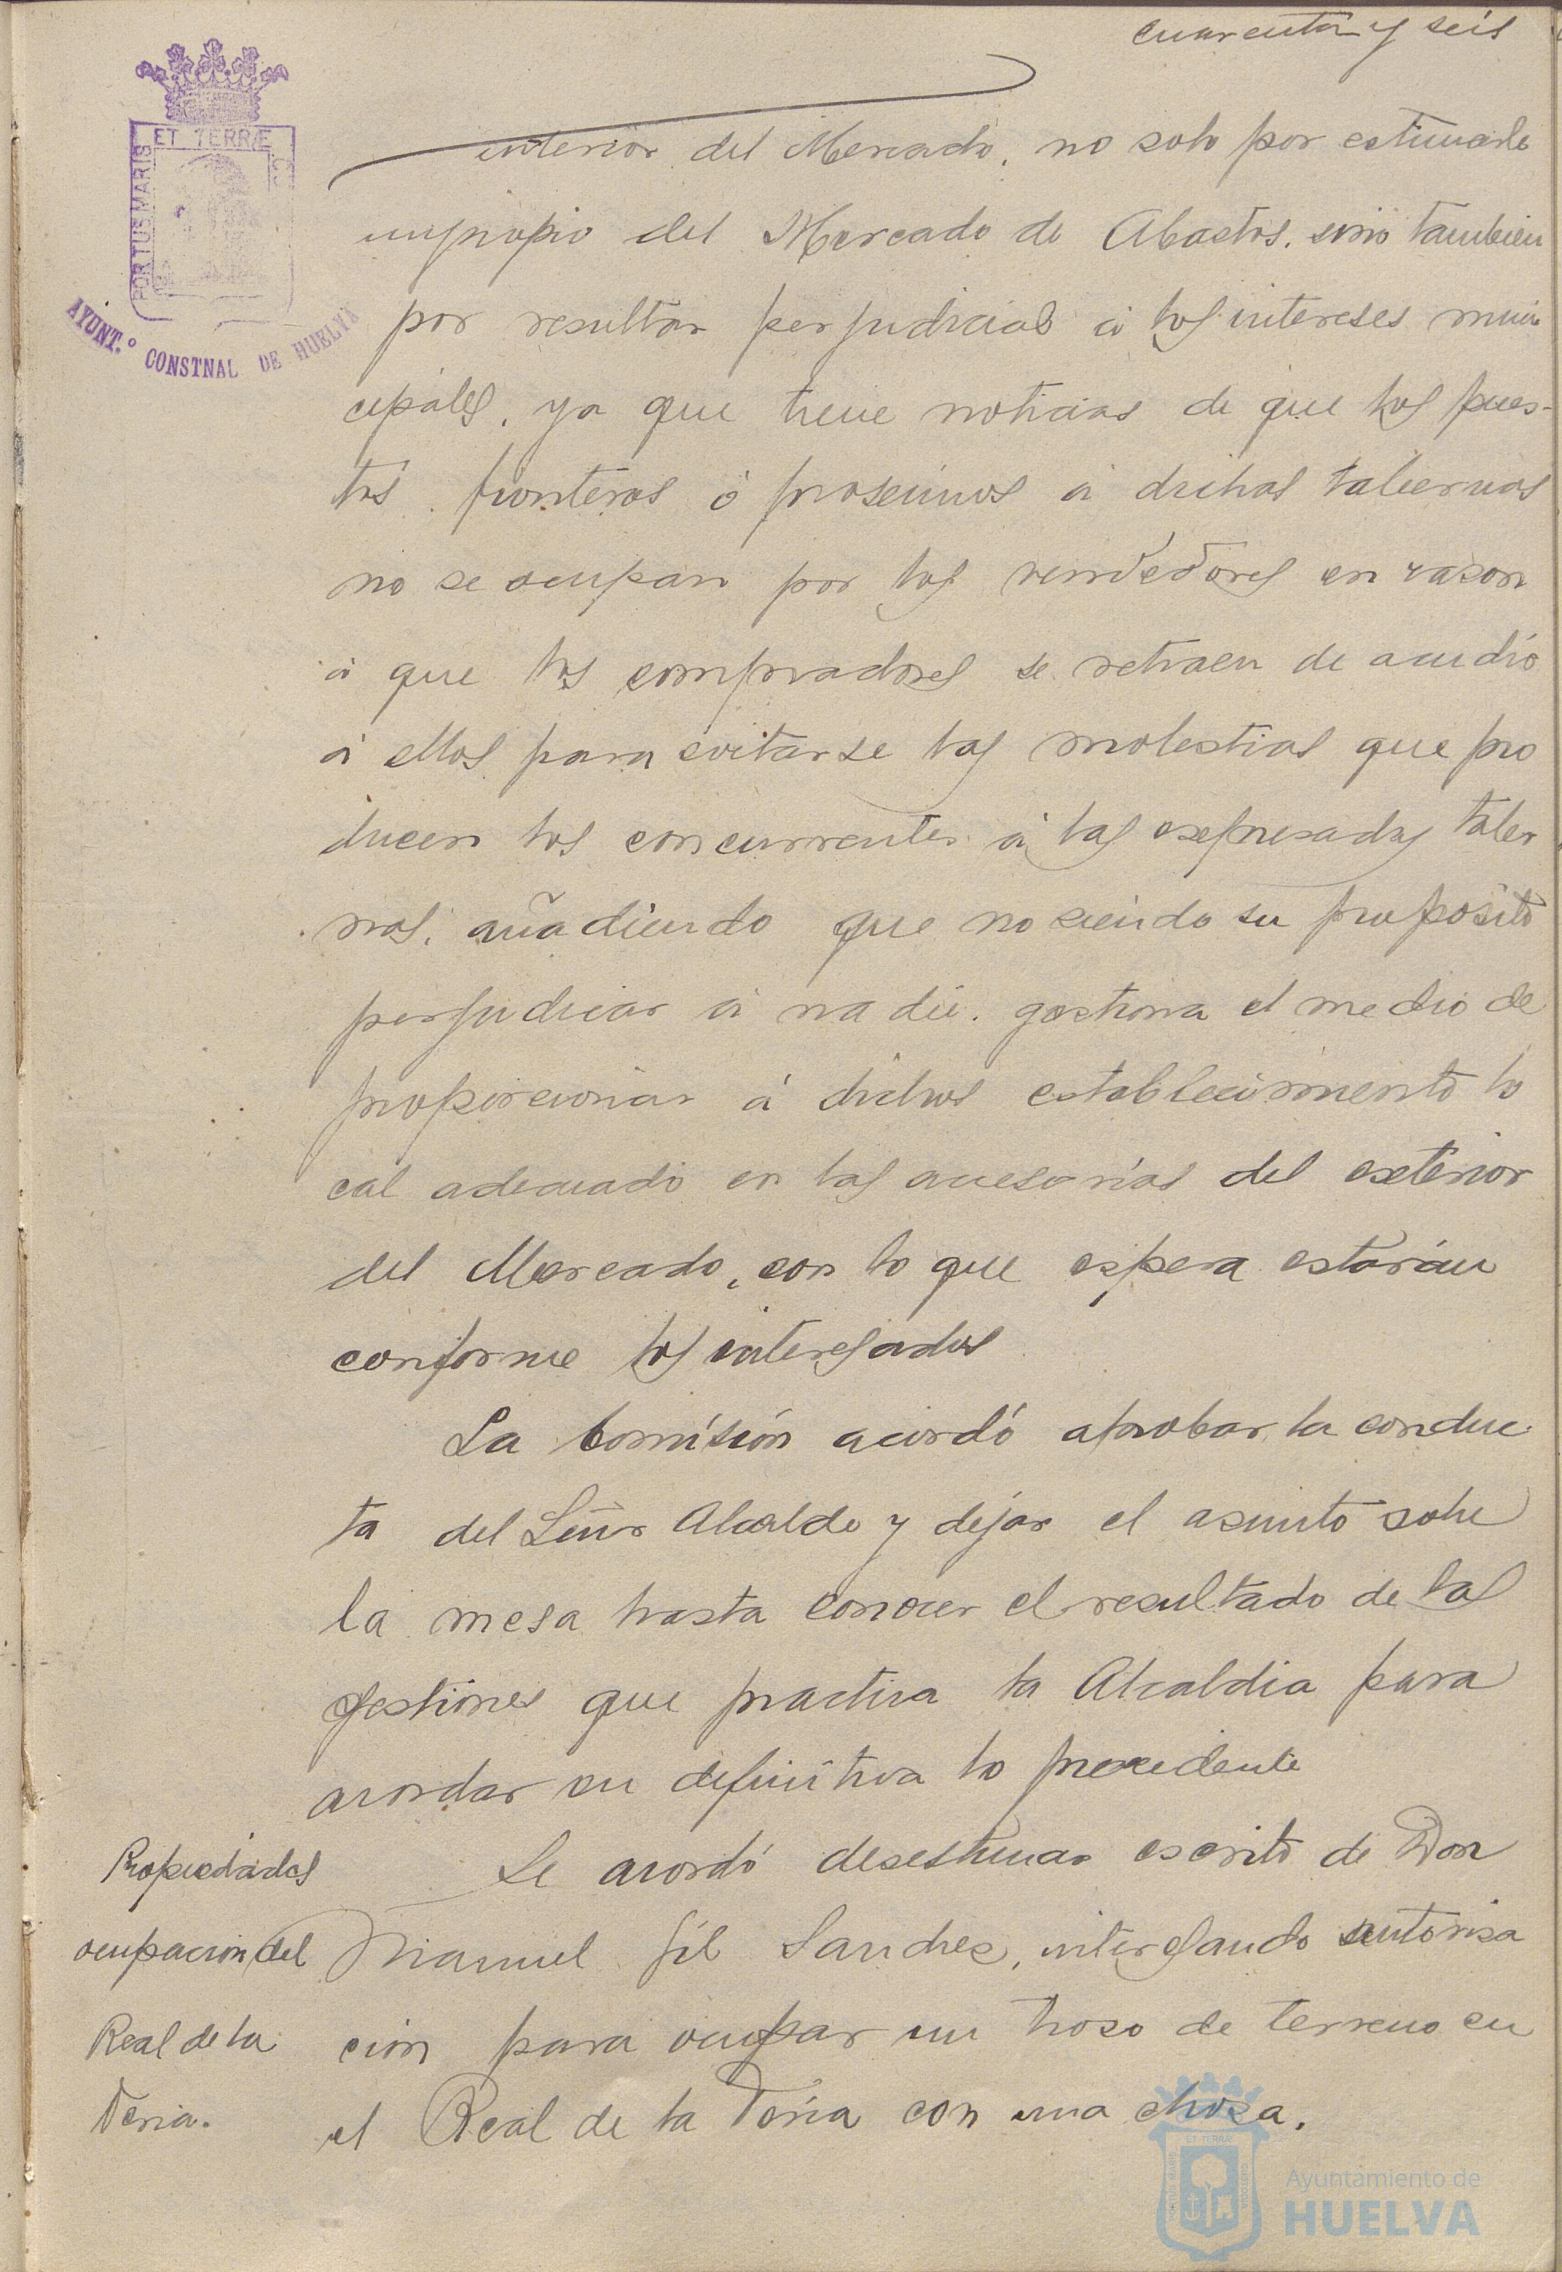 cuarenta y seis
ET TERRÆ
PORTUS MARIS
AYUNT.º CONSTNAL DE HUELVA
interior del Mercado, no solo por estimarlo
impropio del Mercado de Abastos, sino tambien
por resultar perjudicial á los intereses muni
cipales, ya que tiene noticias de que los pues-
tos fronteros ó proseimos á dichas tabernas
no se ocupan por los vendedores en razon
á que los compradores se retraen de acudir
á ellos para evitarse las molestias que pro
ducen los concurrentes á las expresadas taber
nas, añadiendo que no siendo su proposito
perjudicar á nadie, gestiona el medio de
proporcionar á dichos establecimiento lo
cal adecuado en las accesorias del exterior
del Mercado, con lo que espera estarán
conforme los interesados
La Comisión acordó aprobar la conduc
ta del Señor Alcalde y dejar el asunto sobre
la mesa hasta conocer el resultado de las
gestiones que practica la Alcaldia para
acordar en definitiva lo procedente
Propiedades
ocupacion del
Real de la
Feria.
Se acordó desestimar escrito de Don
Manuel Gil Sanchez, interesando autoriza
cion para ocupar un trozo de terreno en
el Real de la Feria con una choza.
Ayuntamiento de
HUELVA